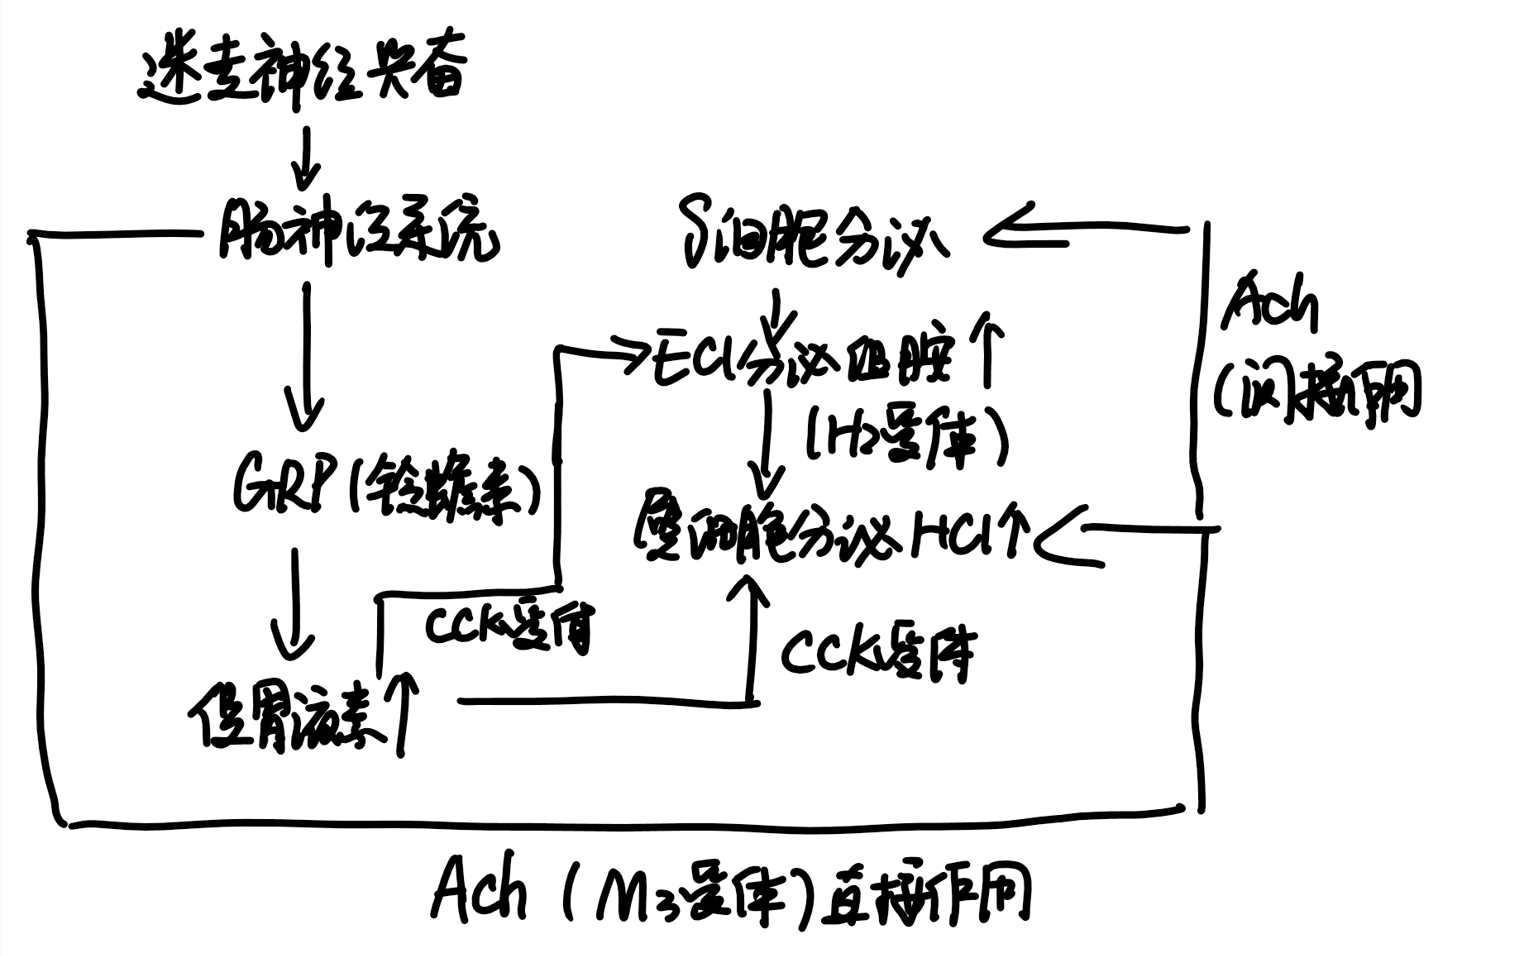 迷走神经兴奋
肠神经系统
GRP(铃蟾素)
促胃液素
S细胞分泌
ECl分泌组胺
(H2受体)
壁细胞分泌HCl
CCK受体
CCK受体
Ach
(间接作用
Ach(M3受体)直接作用